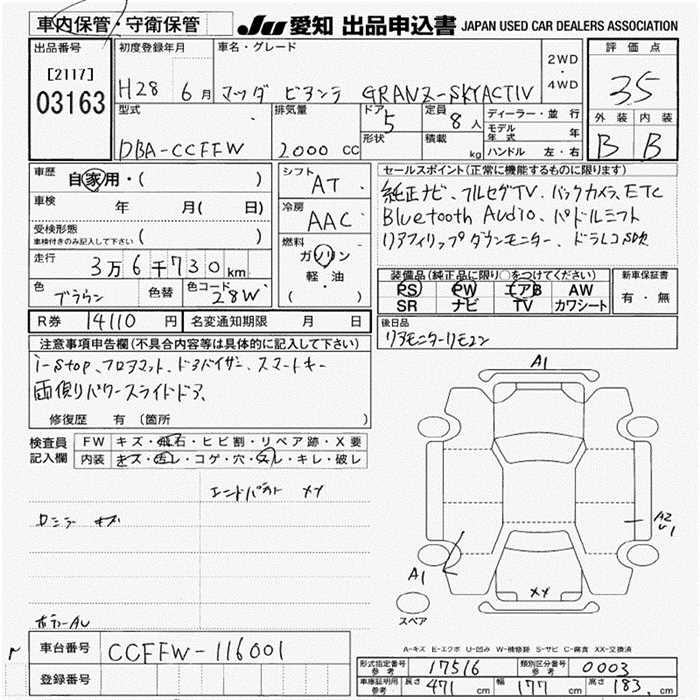 車内保管・守衛保管 JU 愛知 出品申込書 JAPAN USED CAR DEALERS ASSOCIATION
出品番号 初度登録年月 車名・グレード 2WD・4WD 評価点
[2117] 03163 H28 6月 マツダ ビアンテ GRANZ-SKYACTIV 35
型式 排気量 ドア 定員 ディーラー・並行 外装 内装
DBA-CCFFW 2000 CC 5 8人 モデル年式 年 B B
形状 積載 kg ハンドル 左・右
車歴 自家用・( ) シフト AT セールスポイント(正常に機能するものに限ります)
車検 年 月( 日) 冷房 AAC 純正ナビ、フルセグTV、バックカメラ、ETC
受検形態 ( ) Bluetooth Audio、パドルシフト
車検付きのみ記入して下さい 燃料 ガソリン リアフィリップダウンモニター、ドラレコ
走行 3万6千730km 軽・油 ( ) 装備品(純正品に限り○をつけてください) 新車保証書
色 ブラウン 色替 色コード 28W PS PW エアB AW 有・無
SR ナビ TV カワシート
R券 14110円 名変通知期限 月 日 後日品
注意事項申告欄(不具合内容等は具体的に記入して下さい) リアモニターリモコン
i-stop、フロアマット、ドアバイザー、スマートキー
両側パワースライドドア、
修復歴 有 (箇所 )
検査員記入欄 FW キズ・飛石・ヒビ割・リペア跡・X要
内装 キズ・汚レ・コゲ・穴・スレ・キレ・破レ
A1
エンドパネル XX
A2
U1
A1
XX
スペア
A-キズ E-エクボ U-凹み W-補修跡 S-サビ C-腐食 XX-交換済
車台番号 CCFFW-116001
登録番号
形式指定番号 参考 17516 類別区分番号 参考 0003
車庫証明用 参考 長さ 471 cm 幅 177 cm 高さ 183 cm